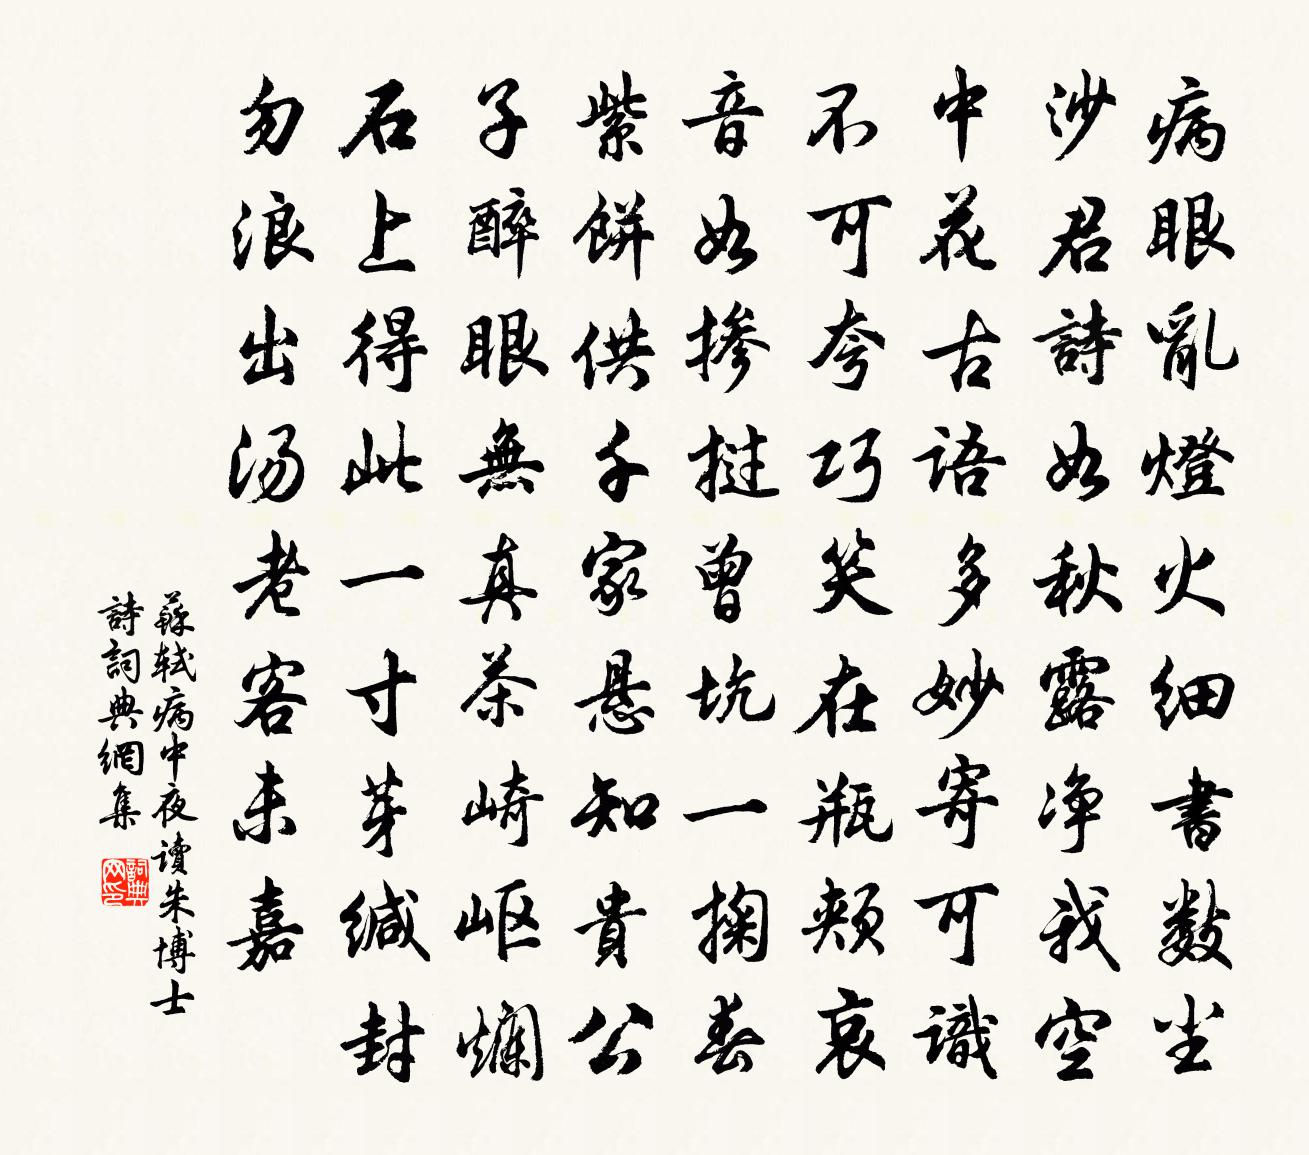 病眼亂燈火細書數尘
沙君詩如秋露净我空
中花古語多妙寄可識
不可夸巧笑在瓶頰哀
音如掺挝曾坑一掬春
紫餅供千家悬知貴公
子醉眼無真茶崎岖爛
石上得此一寸芽緘封
勿浪出汤老客未嘉
蘇軾病中夜讀朱博士
詩詞典網集
詞典
网印